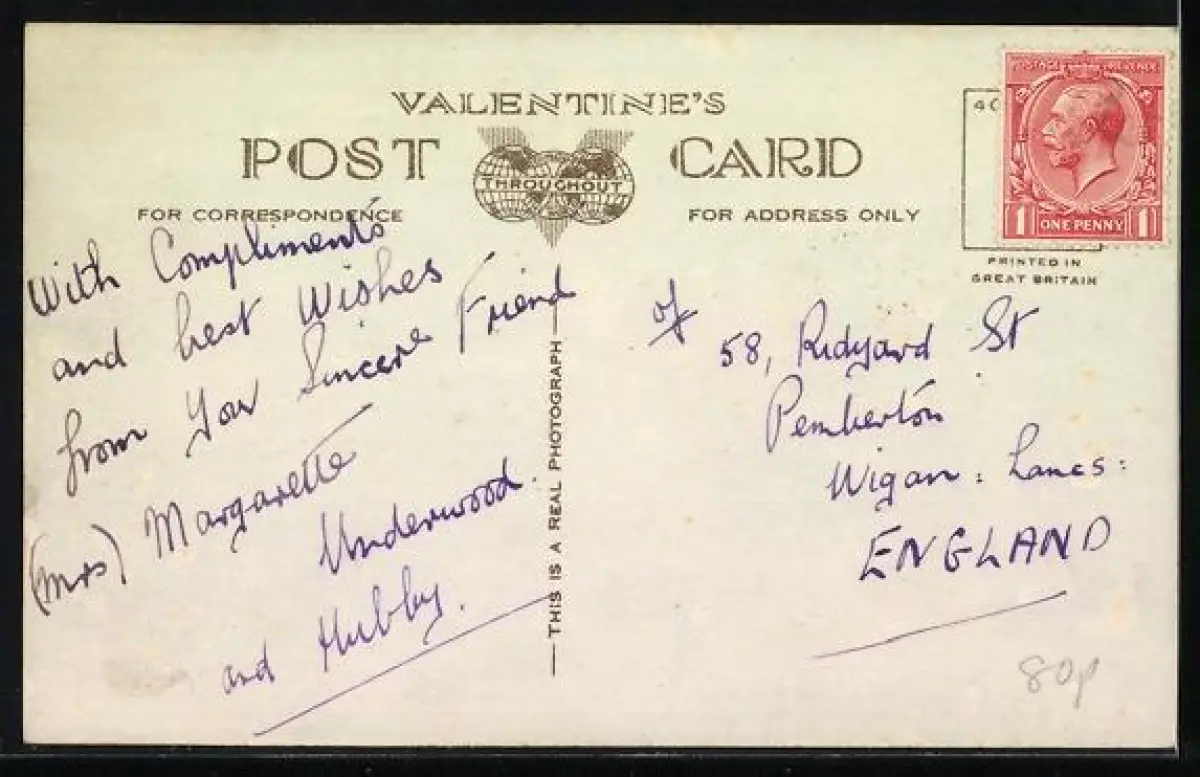 VALENTINE'S
POST CARD
THROUGHOUT
FOR CORRESPONDENCE
FOR ADDRESS ONLY
POSTAGE REVENUE
1 ONE PENNY 1
PRINTED IN
GREAT BRITAIN
With Compliments
and best Wishes
from Your Sincere Friend
(Mrs) Margarette
Underwood.
and Hubby.
THIS IS A REAL PHOTOGRAPH
of
58, Ridyard St
Pemberton
Wigan : Lancs :
ENGLAND
80p